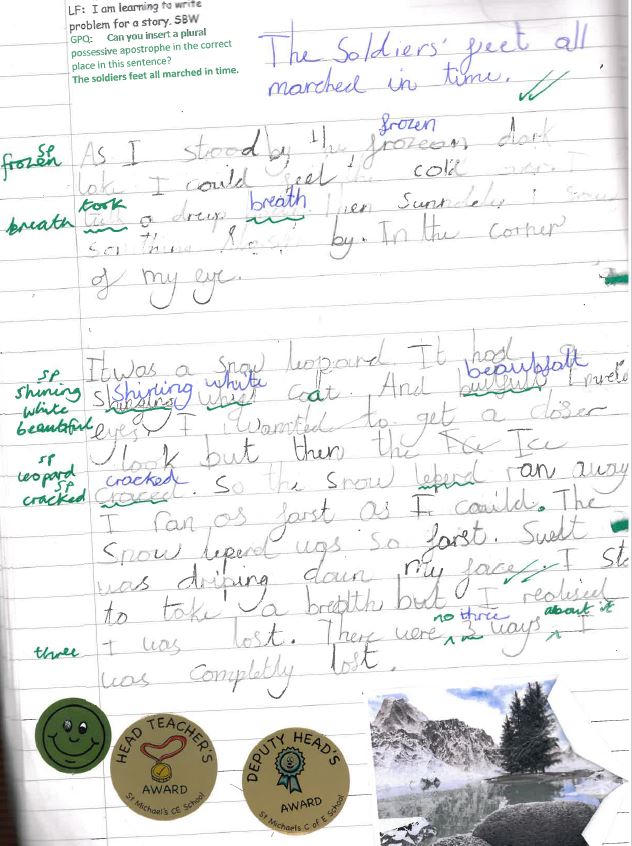 LF: I am learning to write
problem for a story. SBW
GPQ: Can you insert a plural
possessive apostrophe in the correct
place in this sentence?
The soldiers feet all marched in time.
The Soldiers' feet all
marched in time.
frozen
sp
frozen
As I stood by the frozeen dark
I could feel cold
took
breath
breath
a deep then
by. In the corner
of my eye.
It was a snow leopard. It had a
sp
shining
white
beautiful
Shining white
coat. And
eyes, I wanted to get a closer
look but then the Ice
sp
leopard
sp
cracked
cracked
craced. So the snow lepend ran away
I ran as farst as I could. The
Snow leperd was so farst. Swelt
was driping down my face. I
to take a breatth but I realised
no three
about it
three
I was lost. There were 3 ways I
was completly lost.
HEAD TEACHER'S
AWARD
St Michael's CE School
DEPUTY HEAD'S
AWARD
St Michaels C of E School